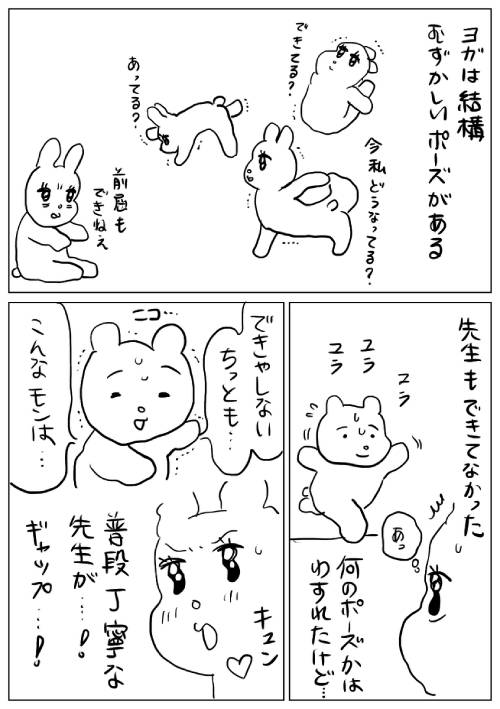 ヨガは結構
むずかしいポーズがある
できてる?
今私どうなってる?
あってる?
前屈も
できねえ
先生もできてなかった
ユラ
ユラ
ユラ
あっ
何のポーズかは
わすれたけど…
ニコ…
できやしない
ちっとも…
こんなモンは…
普段丁寧な
先生が…!
ギャップ…!
キュン